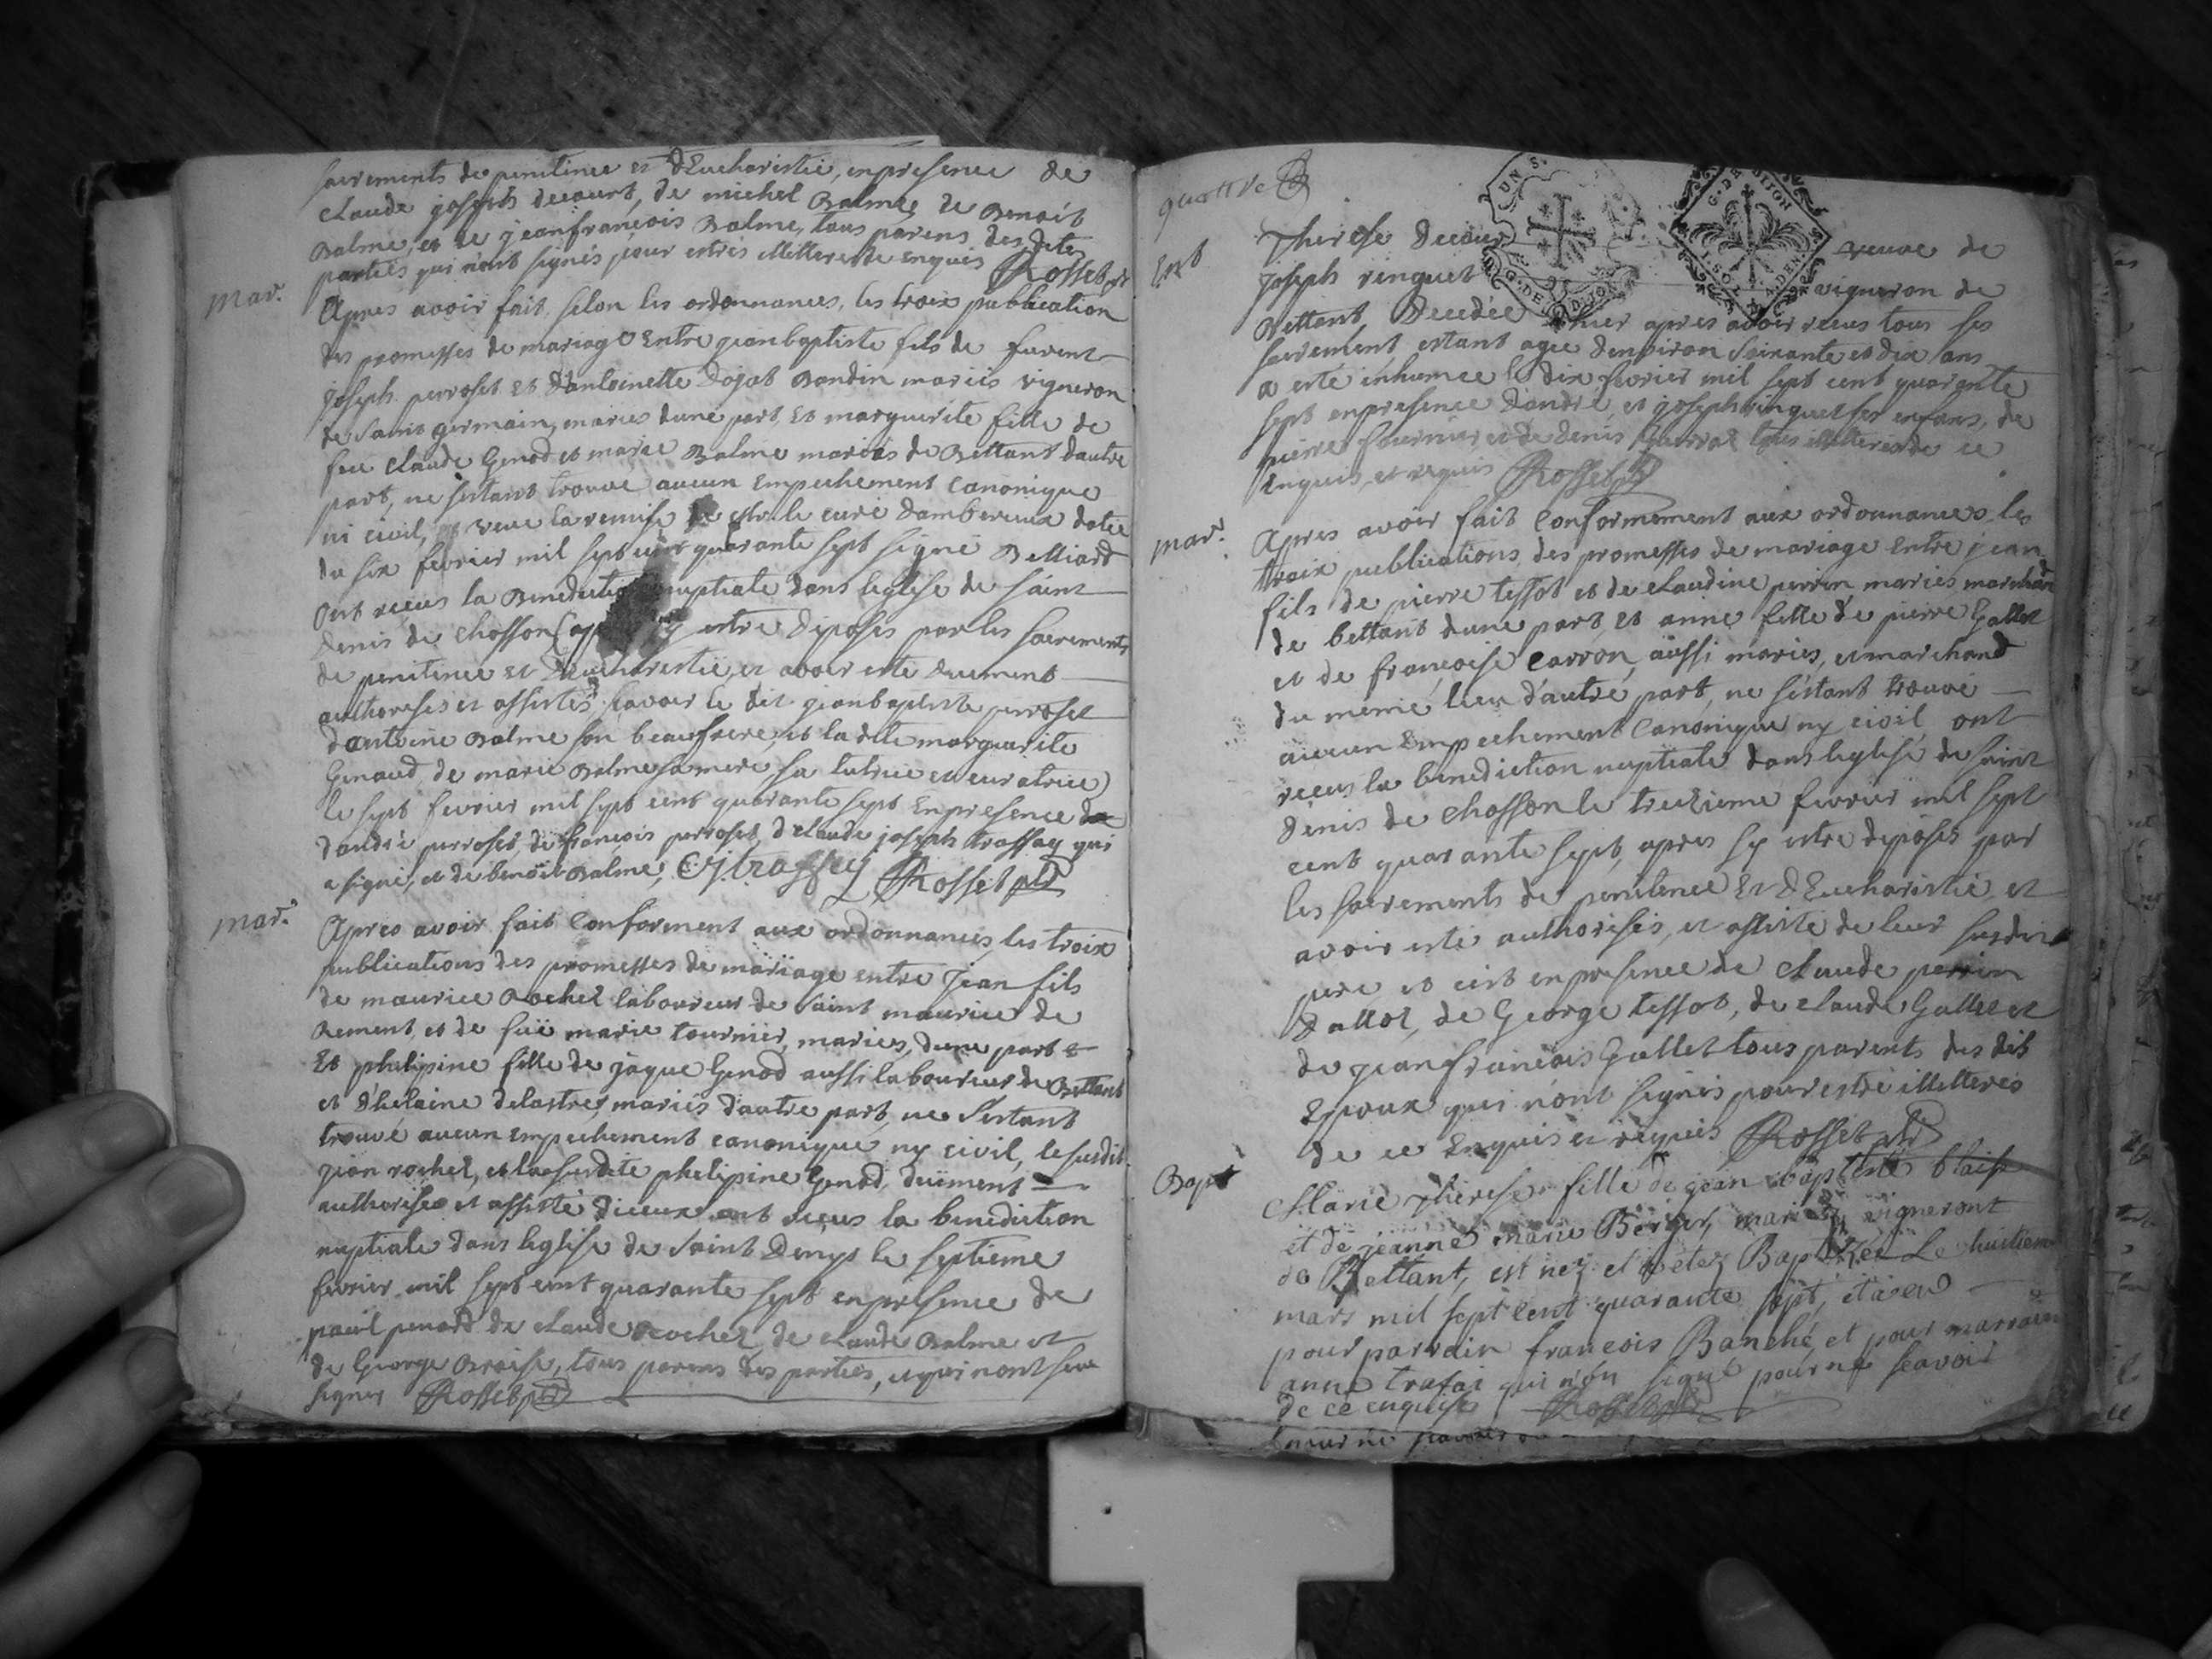 sacrements de penitence et d'Eucharistie, en presence de
claude joseph decourt, de michel Balme, de Benoit
Balme, et de jeanfrancois Balme, tous parens des dites
parties qui n'ont signés pour estres illetteres de enquis Rosset ptr
mar.
Apres avoir fait, selon les ordonnances, les troix publication
des promesses de mariage Entre jeanbaptiste fils de furent
joseph perroset et d'antoinette dojat Bondin mariés vigneron
de saint germain, maries dune part, Et marguerite fille de
feu claude Genod et marie Balme mariés de Bettant dautre
part, ne sestant trouvé aucun Empechement Canonique
ni civil, veue la remise de le curé dambereux datee
du six fevrier mil sept cent quarante sept signé Belliard
ont reçus la Benediction nuptiale dans leglise de saint
denis de chosson (ap estre disposés par les sacrements
de penitence et d'Eucharistie, et avoir esté duement
authorisés et assistés, scavoir le dit jeanbaptiste perroset
d'antoine Balme son beaufrere, et la dite marguerite
Genaud de marie Balme sa mere sa tutrice et curatrice)
le sept fevrier mil sept cent quarante sept En presence
d'andré perroset, de francois perroset, de claude joseph trassay qui
a signé, et de benoit Balme, CJ trassey Rosset ptr
mar.
Apres avoir fait Conforment aux ordonnances, les troix
publications des promesses de mariage entre Jean fils
de maurice Rochez laboureur de saint maurice de
Rement, et de fuë marie tournier, maries, dune part
Et phelipine fille de jaque Genod aussi laboureur de Bettant
et d'helaine delastre, mariés dautre part, ne sestant
trouvé aucun Empechement canonique ny civil, le susdit
jean rochez, et la susdite phelipine Genod, duëment
authorisés et assisté diceux ont reçus la benediction
nuptiale dans leglise de saint Denys le septieme
fevrier mil sept cent quarante sept en presence de
paul penard de claude Rochez, de claude Balme et
de George Braise, tous parens des parties, et qui n'ont sceu
signer Rosset ptr
quattre
Ent
Therese Decour veuve de
joseph vinguet vigneron de
Bettant Decedée hier apres avoir recus tous ses
sacrement estant agee denviron soixante et dix ans
a esté inhumee le dix fevrier mil sept cent quarante
sept en presence d'andré, et joseph vinguet ses enfans, de
pierre fournier, et de denis tous illetteres de ce
enquis, et requis Rosset ptr
mar.
Apres avoir fait Conformement aux ordonnances les
troix publications des promesses de mariage Entre jean
fils de pierre tessot et de claudine perrin maries marchand
de bettant dune part, et anne fille de pierre Gallet
et de françoise Carron, aüssi maries, et marchand
du meme lieu d'autre part, ne sestant trouvé
aucun Empechement Canonique ny civil ont
reçus la benediction nuptiale dans leglise de saint
Denis de chosson le treizieme fevrier mil sept
cent quarante sept, apres sy estre disposés par
les sacrements de penitence Et d'Eucharistie et
avoir esté authorisés, et assisté de leur susdit
pere et cest en presence de claude perrin
dallol, de George tessot, de claude Gallet et
de jeanfrancois Gallet tous parents des dits
Epoux qui n'ont signés pour estre illetteres
de ce Enquis et requis Rosset ptr
Bapt
Marie therese fille de jean baptiste blaise
et de jeanne marie Berger, mariez vigneront
de Bettant, est nez et a etez Baptizee Le huitiem
mars mil sept cent quarante sept, et a eu
pour parrain francois Banché, et pour marraine
anne trafai qui n'en signé pour ne scavoir
de ce enquise Rosset ptr